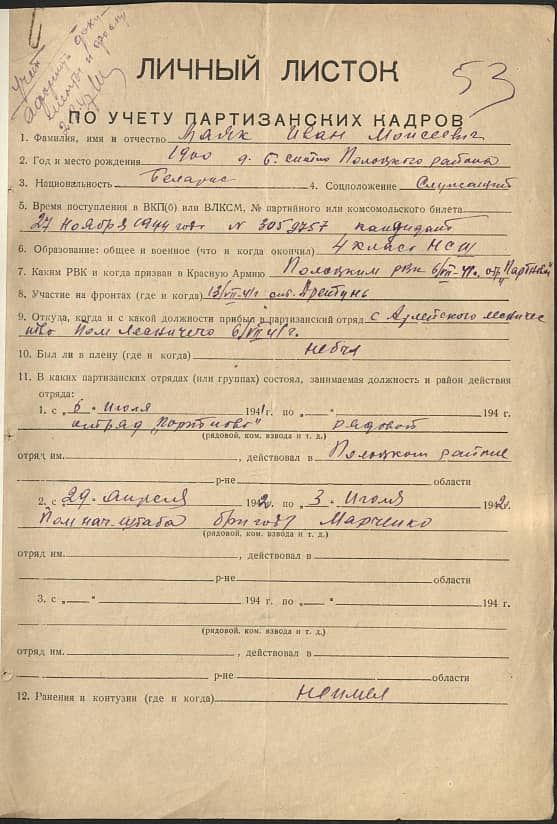 Учет
53
ЛИЧНЫЙ ЛИСТОК
ПО УЧЕТУ ПАРТИЗАНСКИХ КАДРОВ
1. Фамилия, имя и отчество Маяк Иван Моисеевич
2. Год и место рождения 1900 д. Б. Ситно Полоцкого района
3. Национальность Беларус 4. Соцположение Служащий
5. Время поступления в ВКП(б) или ВЛКСМ, № партийного или комсомольского билета
27 Ноября 1944 года № 3059757 кандидат
6. Образование: общее и военное (что и когда окончил) 4 класс НСШ
7. Каким РВК и когда призван в Красную Армию Полоцким рвк 6/VII-41г.
8. Участие на фронтах (где и когда) 13/VII-41г.
9. Откуда, когда и с какой должности прибыл в партизанский отряд с
Пом Лесничего 6/VII 41г.
10. Был ли в плену (где и когда) небыл
11. В каких партизанских отрядах (или группах) состоял, занимаемая должность и район действия
отряда:
1. с „ 6 “ Июля 1941 г по „ — “ 194 г.
отряд рядовой
(рядовой, ком. взвода и т. д.)
отряд им. , действовал в Полоцком районе
р-не области
2. с „ 29 “ Апреля 1942 г. по „ 3 “ Июля 1942.
Пом нач. штаба бригады Марченко
(рядовой, ком. взвода и т. д.)
отряд им. , действовал в
р-не области
3. с „ — “ 194 г. по „ — “ 194 г.
(рядовой, ком. взвода и т. д.)
отряд им. , действовал в
р-не области
12. Ранения и контузии (где и когда) неимел